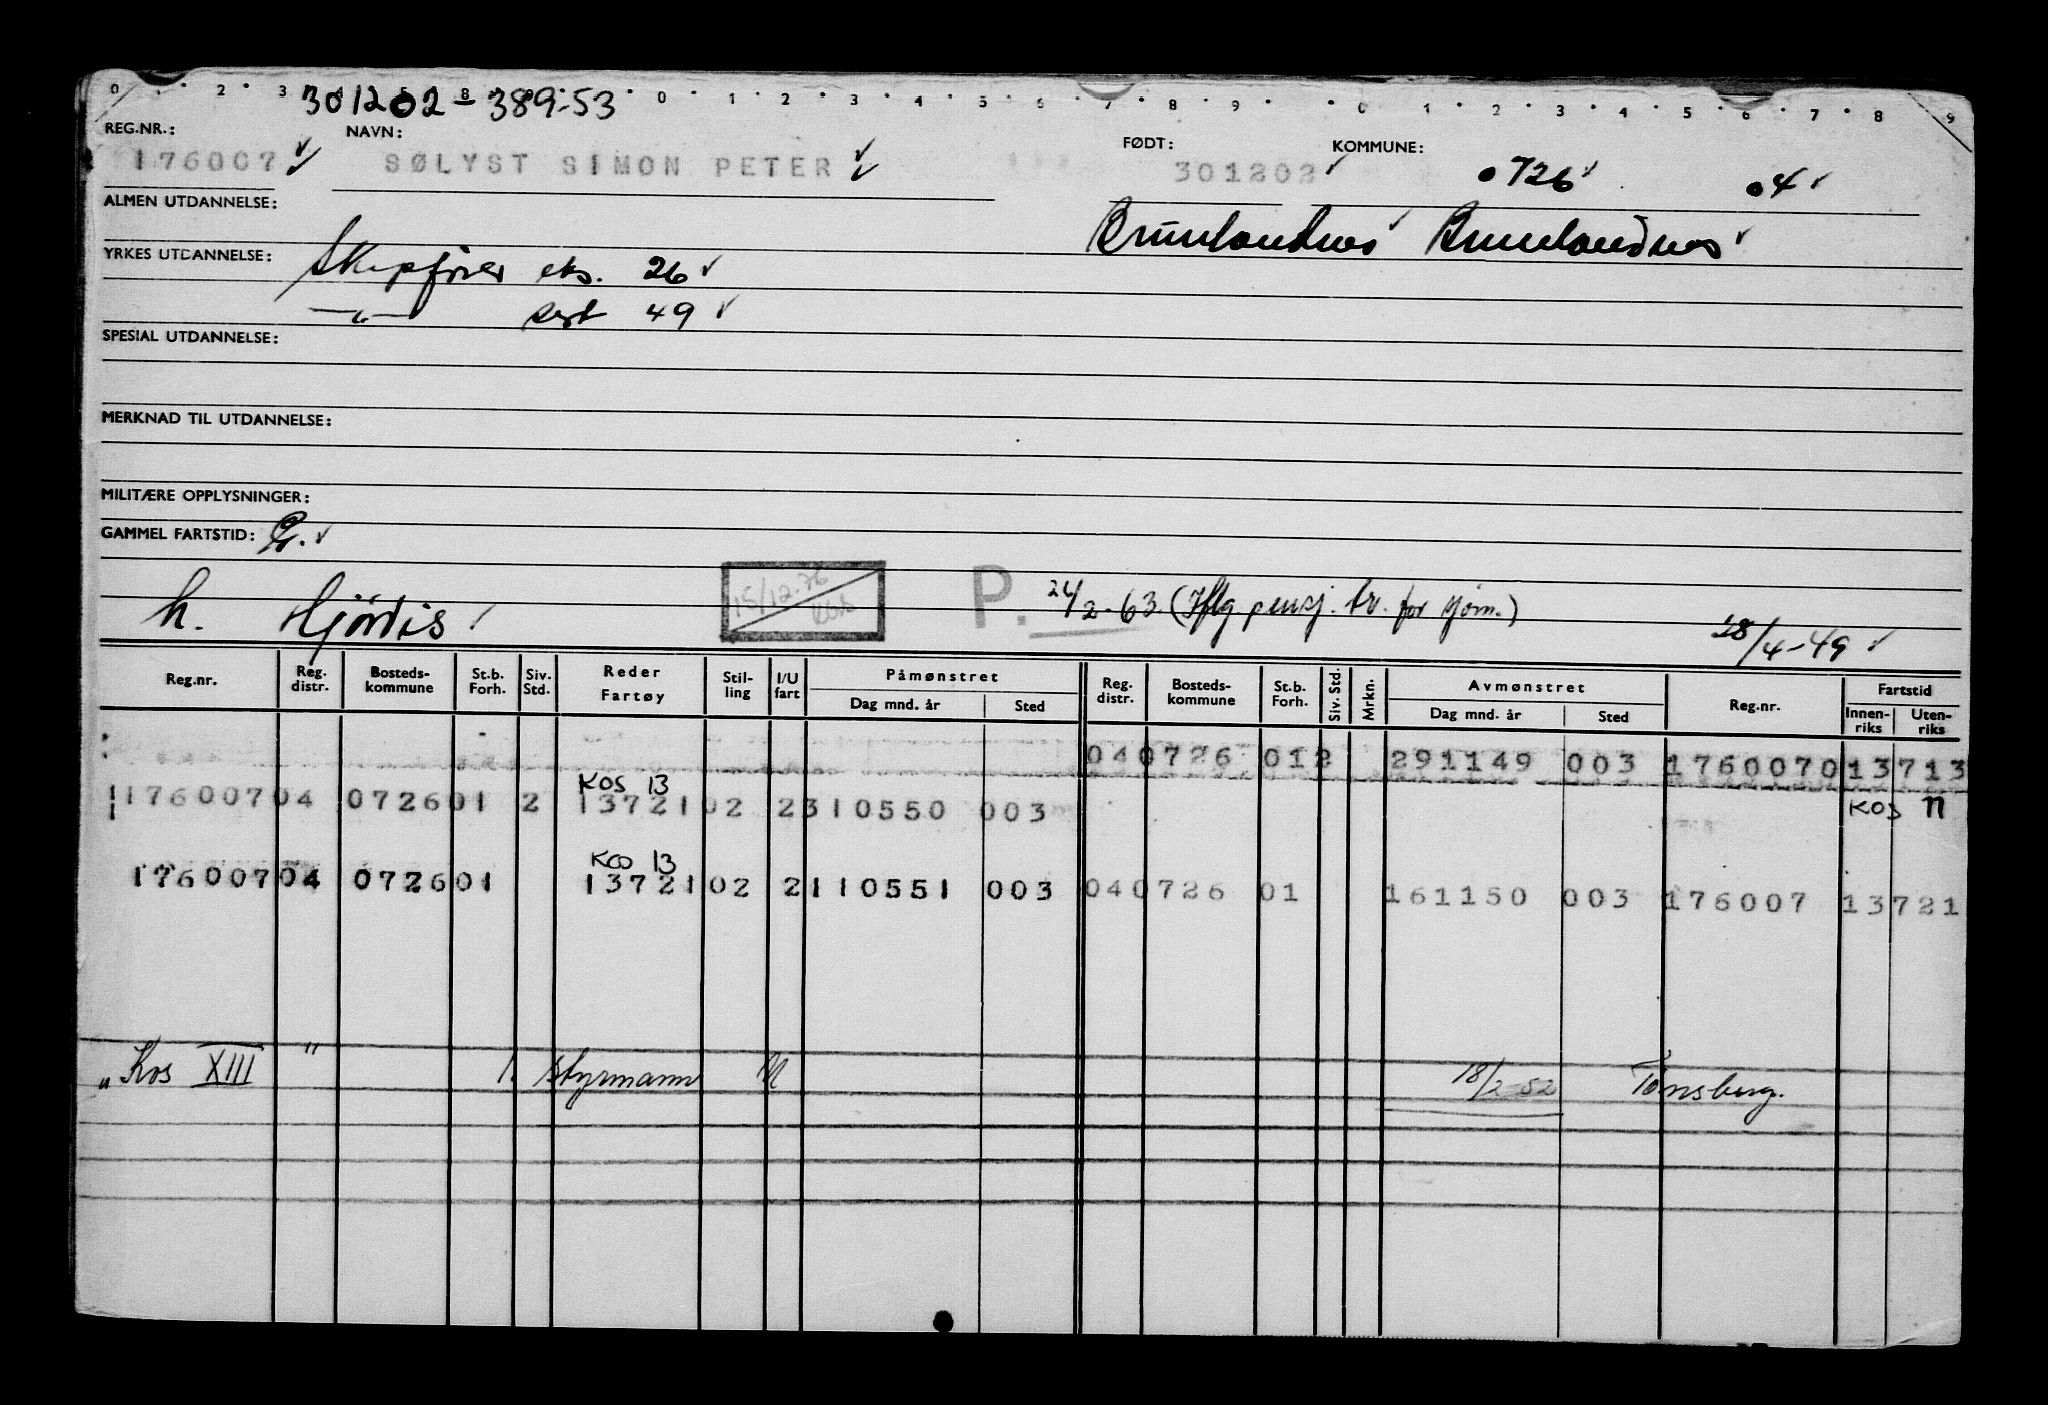 0 2 3 8 0 1 2 3 4 5 6 7 8 9 0 1 2 3 4 5 6 7 8 9
301202-389-53
REG.NR.: NAVN: FØDT: KOMMUNE:
176007 SØLYST SIMON PETER 301202 0726 04
ALMEN UTDANNELSE: Brunlandnes Brunlandnes
YRKES UTDANNELSE: Skipsfører eks. 26
—"— sert 49
SPESIAL UTDANNELSE:
MERKNAD TIL UTDANNELSE:
MILITÆRE OPPLYSNINGER:
GAMMEL FARTSTID:
h. Hjördis 15/12.76 P. 26/2-63. (Iflg. pensj. tr. for sjøm.) 28/4-49
Reg.nr. Reg. distr. Bosteds-kommune St.b. Forh. Siv. Std. Reder Fartøy Stil-ling I/U fart Påmønstret Dag mnd. år Sted Reg. distr. Bosteds-kommune St.b. Forh. Siv. Std. Mrkn. Avmønstret Dag mnd. år Sted Reg.nr. Fartstid Innen-riks Uten-riks
040726 012 291149 003 1760070 13713
KOS 13 KOS 11
17600704 072601 2 1372102 2310550 003
KOS 13
17600704 072601 1372102 2110551 003 040726 01 161150 003 176007 13721
"Kos XIII" 1. styrmann U 18/2-52 Tønsberg.